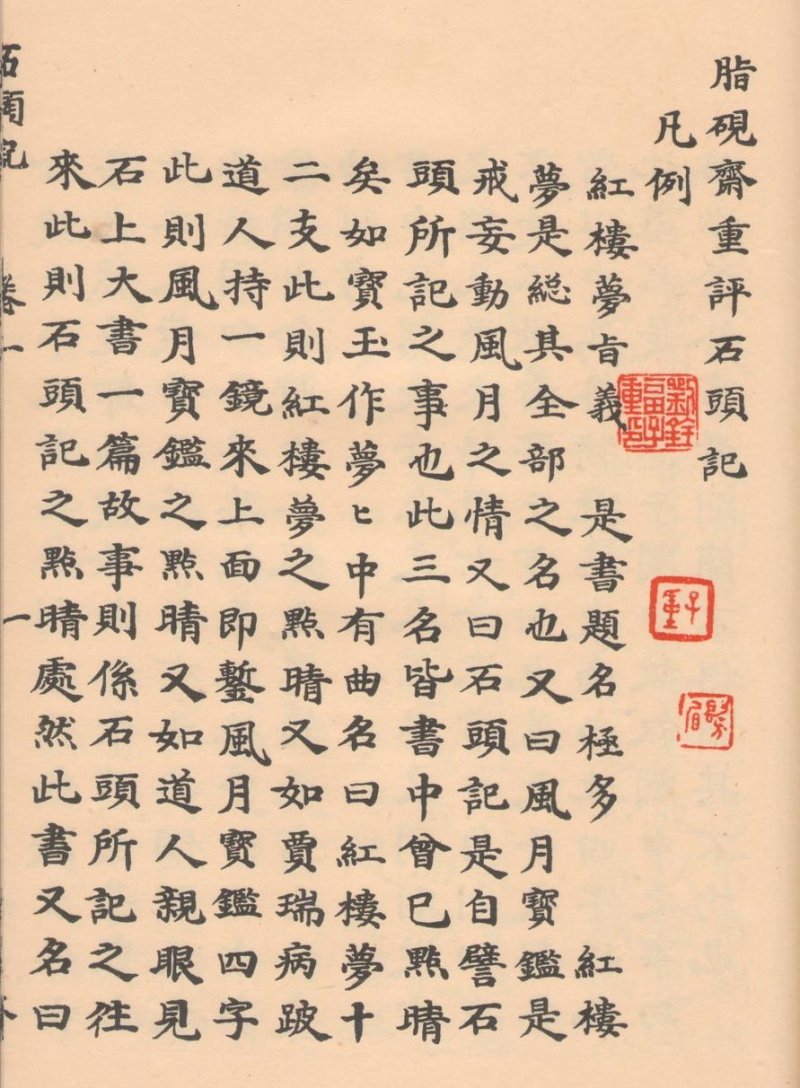 脂硯齋重評石頭記
凡例
紅樓夢旨義 是書題名極多 紅樓
夢是総其全部之名也又曰風月寶鑑是
戒妄動風月之情又曰石頭記是自譬石
頭所記之事也此三名皆書中曾已點晴
矣如寶玉作夢匕中有曲名曰紅樓夢十
二支此則紅樓夢之點晴又如賈瑞病跛
道人持一鏡來上面即鏨風月寶鑑四字
此則風月寶鑑之點晴又如道人親眼見
石上大書一篇故事則係石頭所記之往
來此則石頭記之點晴處然此書又名曰
石頭記 卷一 一
劉銓畐子重印
子重